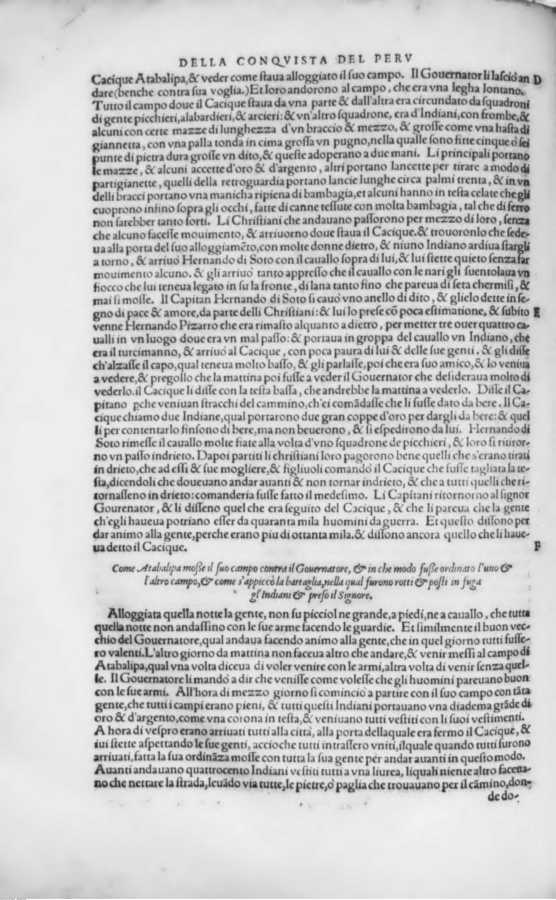 DELLA CONQVISTA DEL PERV
Cacique Atabalipa,& veder come staua alloggiato il suo campo. Il Gouernator li lasciò an D
dare(benche contra sua voglia.)Et loro andorono al campo, che era vna legha lontano.
Tutto il campo doue il Cacique staua da vna parte & dall'altra era circundato da squadroni
di gente picchieri,alabardieri,& arcieri: & vn'altro squadrone, era d'Indiani,con frombe,&
alcuni con certe mazze di lunghezza d'vn braccio & mezzo, & grosse come vna hasta di
giannetta, con vna palla tonda in cima grossa vn pugno,nella qualle sono fitte cinque ò sei
punte di pietra dura grosse vn dito,& queste adoperano a due mani. Li principali portano
le mazze, & alcuni accette d'oro & d'argento, altri portano lancette per tirare a modo di
partigianette, quelli della retroguardia portano lancie lunghe circa palmi trenta, & in vn
delli bracci portano vna manicha ripiena di bambagia,et alcuni hanno in testa celate che gli
cuoprono infino sopra gli occhi, fatte di canne tessute con molta bambagia, tal che di ferro
non sarebber tanto forti. Li Christiani che andauano passorono per mezzo di loro, senza
che alcuno facesse mouimento, & arriuorno doue staua il Cacique.& trouoronlo che sede-
ua alla porta del suo alloggiamẽto,con molte donne dietro, & niuno Indiano ardiua stargli
a torno, & arriuò Hernando di Soto con il cauallo sopra di lui,& lui stette quieto senza far
mouimento alcuno. & gli arriuò tanto appresso che il cauallo con le nari gli suentolaua vn
fiocco che lui teneua legato in su la fronte, di lana tanto fino che pareua di seta chermisi, &
mai si mosse. Il Capitan Hernando di Soto si cauò vno anello di dito, & glielo dette in se-
gno di pace & amore,da parte delli Christiani:& lui lo prese cõ poca estimatione, & subito E
venne Hernando Pizarro che era rimasto alquanto a dietro, per metter tre ouer quattro ca-
ualli in vn luogo doue era vn mal passo: & portaua in groppa del cauallo vn Indiano, che
era il turcimanno, & arriuò al Cacique, con poca paura di lui & delle sue genti. & gli disse
ch'alzasse il capo,qual teneua molto basso, & gli parlasse,poi che era suo amico,& lo veniua
a vedere,& pregollo che la mattina poi fusse a veder il Gouernator che desideraua molto di
vederlo. il Cacique li disse con la testa bassa, che andrebbe la mattina a vederlo. Disse il Ca-
pitano pche veniuan stracchi del cammino,ch'ei comãdasse che li fusse dato da bere. Il Ca-
cique chiamo due Indiane,qual portarono due gran coppe d'oro per dargli da bere: & quel
li per contentarlo finsono di bere,ma non beuerono, & si espedirono da lui. Hernando di
Soto rimesse il cauallo molte fiate alla volta d'vno squadrone de picchieri, & loro si ritiror-
no vn passo indrieto. Dapoi partiti li christiani loro pagorono bene quelli che s'erano tirati
in drieto,che ad essi & sue mogliere,& figliuoli comandò il Cacique che fusse tagliata la te-
sta,dicendoli che doueuano andar auanti & non tornar indrieto, & che a tutti quelli che ri-
tornassẽno in drieto: comanderia fusse fatto il medesimo. Li Capitani ritornorno al signor
Gouernator, & li disseno quel che era seguito del Cacique, & che li pareua che la gente
ch'egli haueua potriano esser da quaranta mila huomini da guerra. Et questo dissono per
dar animo alla gente,perche erano piu di ottanta mila.& dissono ancora quello che li haue-
ua detto il Cacique. F
Come Atabalipa mosse il suo campo contra il Gouernatore, & in che modo fusse ordinato l'uno &
l'altro campo,& come s'appiccò la battaglia,nella qual furono rotti & posti in fuga
gl'Indiani & preso il Signore.
Alloggiata quella notte la gente, non su picciol ne grande,a piedi,ne a cauallo, che tutta
quella notte non andassino con le sue arme facendo le guardie. Et similmente il buon vec-
chio del Gouernatore,qual andaua facendo animo alla gente,che in quel giorno tutti fusse-
ro valenti.L'altro giorno da mattina non faceua altro che andare,& venir messi al campo di
Atabalipa,qual vna volta diceua di voler venire con le armi,altra volta di venir senza quel-
le. Il Gouernatore li mandò a dir che venisse come volesse che gli huomini pareuano buon
con le sue armi. All'hora di mezzo giorno si cominciò a partire con il suo campo con tãta
gente,che tutti i campi erano pieni, & tutti questi Indiani portauano vna diadema grãde di
oro & d'argento,come vna corona in testa,& veniuano tutti vestiti con li suoi vestimenti.
A hora di vespro erano arriuati tutti alla città, alla porta dellaquale era fermo il Cacique, &
iui stette aspettando le sue genti, accioche tutti intrassero vniti,ilquale quando tutti furono
arriuati,fatta la sua ordinãza mosse con tutta la sua gente per andar auanti in questo modo.
Auanti andauano quattrocento Indiani vestiti tutti a vna liurea, liquali niente altro faceua-
no che nettare la strada,leuãdo via tutte,le pietre,ò paglia che trouauano per il cãmino,don-
de do-